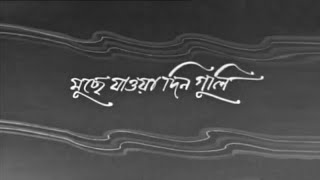 মুছে যাওয়া দিন গুলি